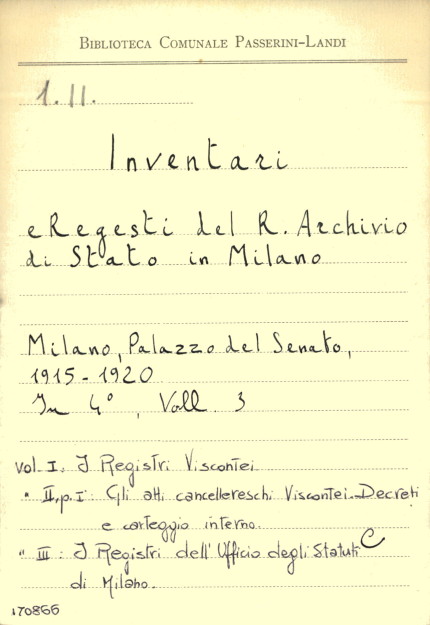 BIBLIOTECA COMUNALE PASSERINI-LANDI
1.II.
Inventari
e Regesti del R. Archivio
di Stato in Milano
Milano, Palazzo del Senato,
1915-1920
In 4°, Voll. 3
vol. I: I Registri Viscontei.
" II, p. I: Gli atti cancellereschi Viscontei. Decreti
e carteggio interno.
" III: I Registri dell'Ufficio degli Statuti
di Milano.
C
170866